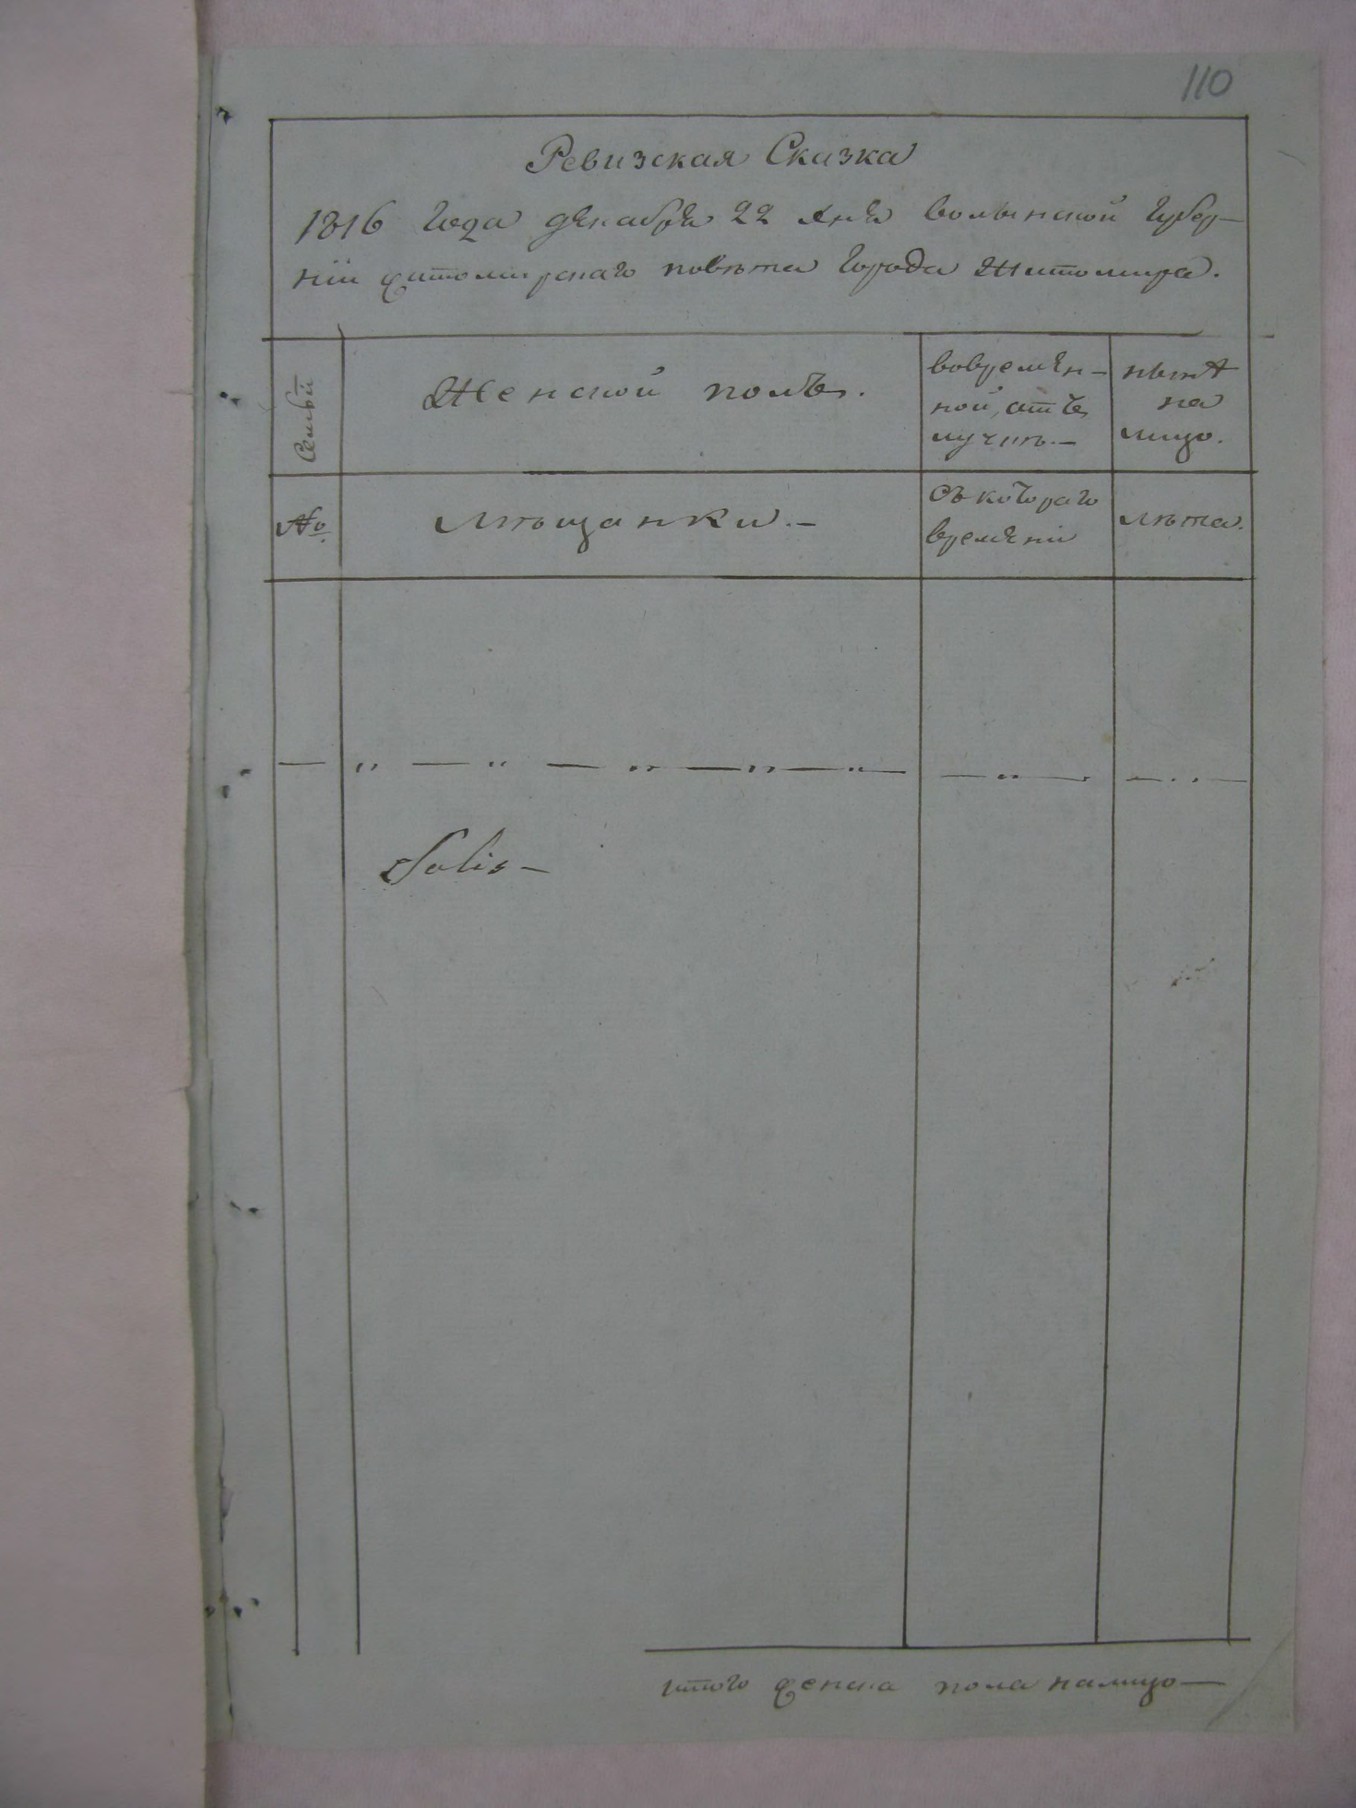 110
Ревизская Сказка
1816 года декабря 22 дня волынской губер-
нии житомирскаго повѣта города Житомира.
Семьи
Женской полъ.
вовремян-
ной, отъ
лучке.-
нынѣ
на
лицо.
№
Мѣщанки.-
Съ котораго
времяни
лѣта.
итого женска пола налицо—